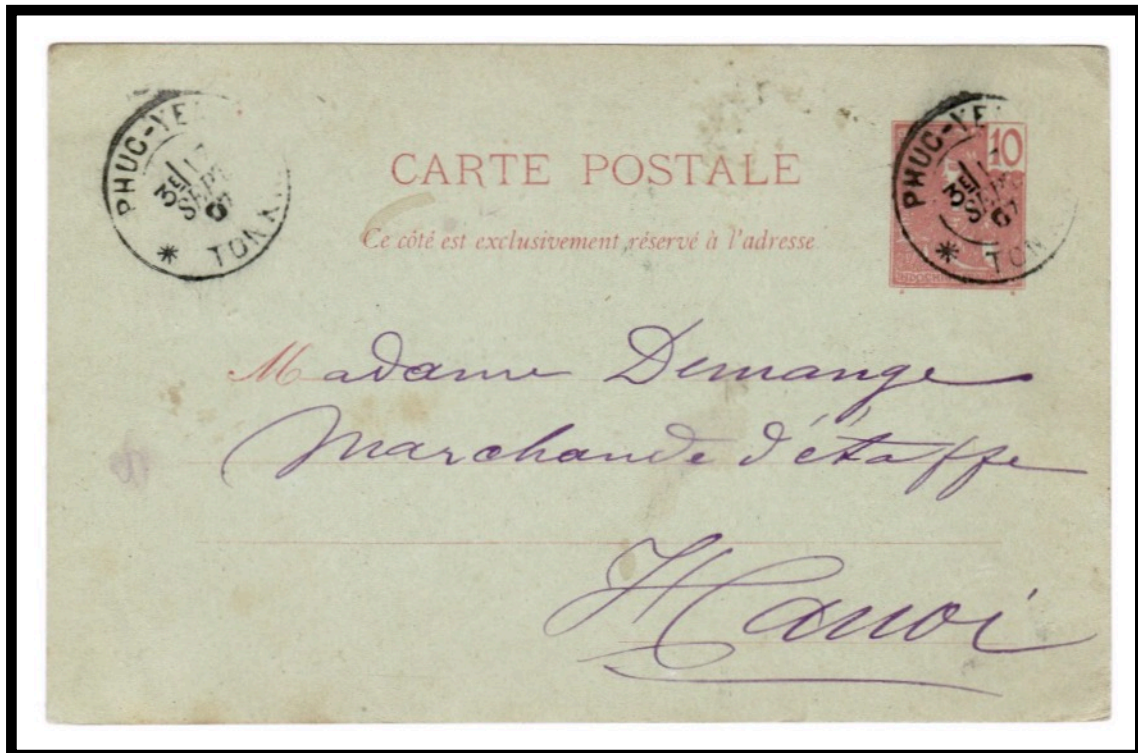 PHUC-YE
3E
SEPT
07
* TONK
CARTE POSTALE
Ce côté est exclusivement réservé à l'adresse
10
INDOCHI
PHUC-YE
3E
SEPT
07
* TON
Madame Demange
Marchande d'étoffe
Hanoi